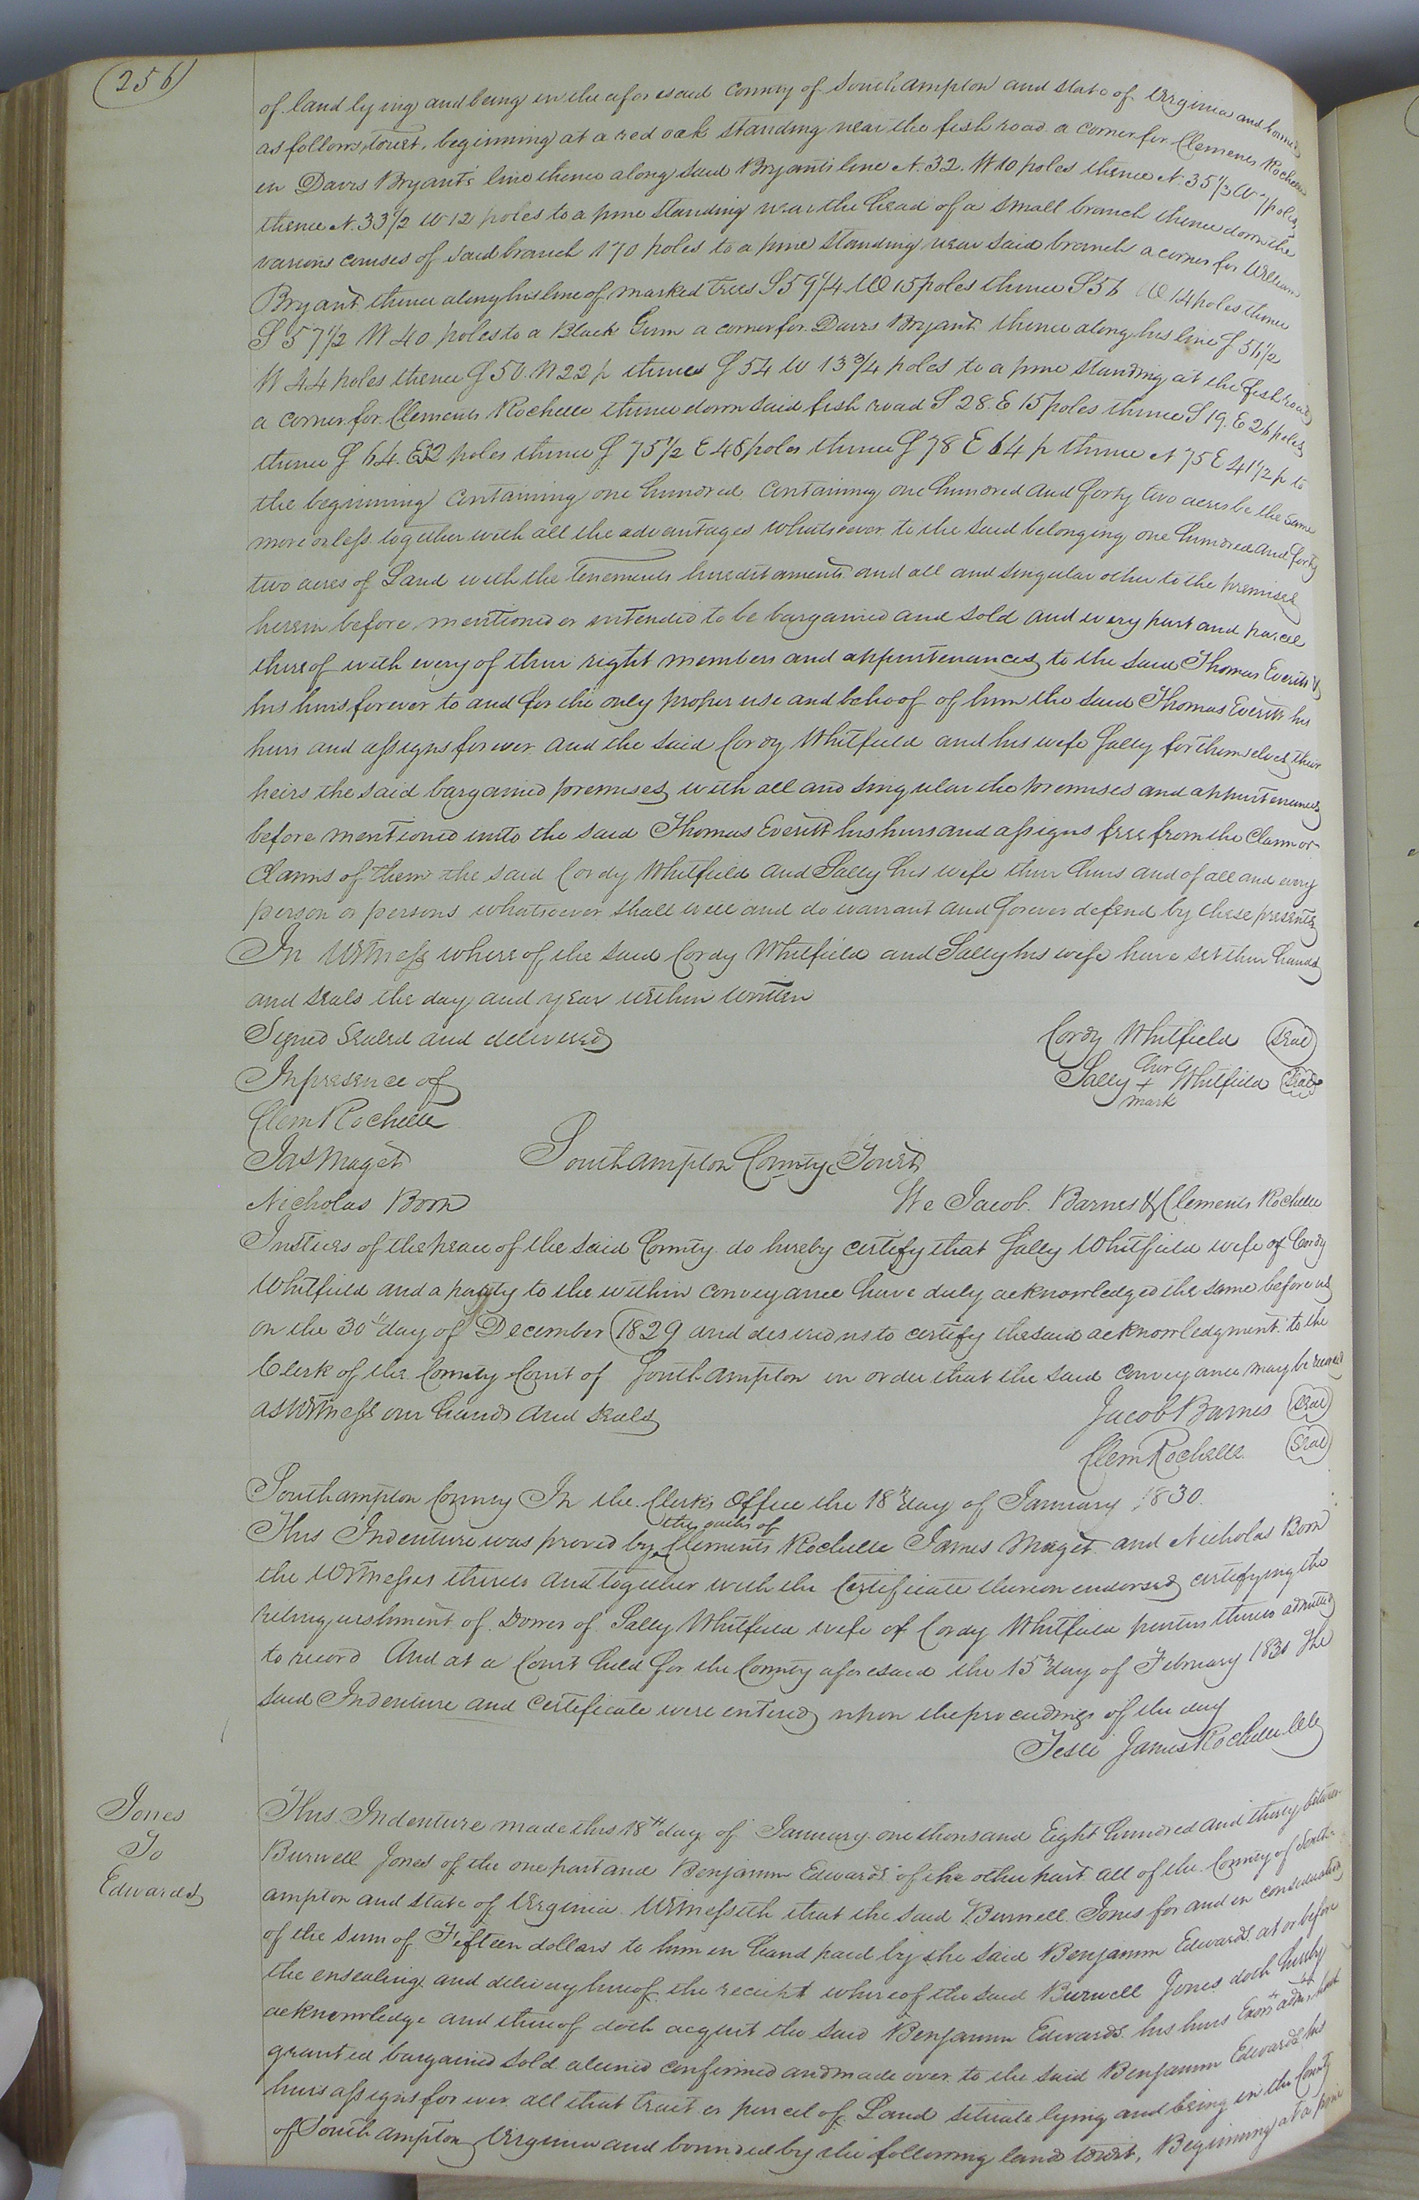 256
of land lying and being in the aforesaid County of Southampton and State of Virginia and bound
as follows, towit, beginning at a red oak standing near the fish road a corner for Clements Rochelle
in Davis Bryant's line thence along said Bryants line N. 32. W 10 poles thence N. 35 1/2 W 7 poles
thence N. 33 1/2 W 12 poles to a pine standing near the head of a small branch thence down the
various courses of said branch 170 poles to a pine standing near said branch a corner for William
Bryant thence along his line of marked trees S 59 1/4 W 15 poles thence S 56 W 14 poles thence
S 57 1/2 W 40 poles to a Black Gum a corner for Davis Bryant thence along his line S 56 1/2
W 44 poles thence S 50. W 22 p thence S 54 W 13 3/4 poles to a pine standing at the fish road
a corner for Clements Rochelle thence down said fish road S 28. E 15 poles thence S 19. E 26 poles
thence S 64. E 32 poles thence S 75 1/2 E 48 poles thence S 78 E 64 p thence N 75 E 41 1/2 p to
the beginning containing one hundred containing one hundred and forty two acres be the same
more or less together with all the advantages whatsoever to the said belonging one hundred and forty
two acres of Land with the Tenements hereditaments and all and singular other to the premises
herein before mentioned or intended to be bargained and sold and every part and parcel
thereof with every of their right members and appurtenances to the said Thomas Everitt &
his heirs forever to and for the only proper use and behoof of him the said Thomas Everitt his
heirs and assigns forever and the said Cordy Whitfield and his wife Sally for themselves their
heirs the said bargained premises with all and singular the premises and appurtenances
before mentioned unto the said Thomas Everitt his heirs and assigns free from the Claim or
Claims of them the said Cordy Whitfield and Sally his wife their heirs and of all and every
person or persons whatsoever shall well and do warrant and forever defend by these presents
In Witness where of the said Cordy Whitfield and Sally his wife have set their hands
and seals the day and year within written
Signed Sealed and delivered Cordy Whitfield Seal
In presence of Sally her + mark Whitfield Seal
Clem Rochelle
Jas Maget Southampton County, Towit
Nicholas Boon We Jacob. Barnes & Clements Rochelle
Justices of the peace of the said County do hereby certify that Sally Whitfield wife of Cordy
Whitfield and a party to the within conveyance have duly acknowledged the same before us
on the 30th day of December 1829 and desired us to certify the said acknowledgment to the
Clerk of the County Court of Southampton in order that the said Conveyance may be recorded
as Witness our hands and seals Jacob Barnes Seal
Clem Rochelle Seal
Southampton County In the Clerks Office the 18th day of January 1830.
This Indenture was proved by the oaths of Clements Rochelle James Maget and Nicholas Boon
the Witnesses thereto and together with the Certificate thereon endorsed certifying the
relinquishment of Dower of Sally Whitfield wife of Cordy Whitfield parties thereto admitted
to record And at a Court held for the County aforesaid the 15th day of February 1830 The
said Indenture and Certificate were entered upon the proceedings of the day
Teste James Rochelle Clk
Jones
To
Edwards
This Indenture made this 18th day of January one thousand Eight hundred and thirty between
Burwell Jones of the one part and Benjamin Edwards of the other part all of the County of South-
ampton and State of Virginia Witnesseth that the said Burwell Jones for and in consideration
of the sum of Fifteen dollars to him in hand paid by the said Benjamin Edwards at or before
the ensealing and delivery hereof the receipt whereof the said Burwell Jones doth hereby
acknowledge and thereof doth acquit the said Benjamin Edwards his heirs Exors admrs hath
granted bargained sold aliened confirmed and made over to the said Benjamin Edwards his
heirs assigns forever all that tract or parcel of Land situate lying and being in the County
of Southampton Virginia and bounded by the following land towit, Beginning at a pine